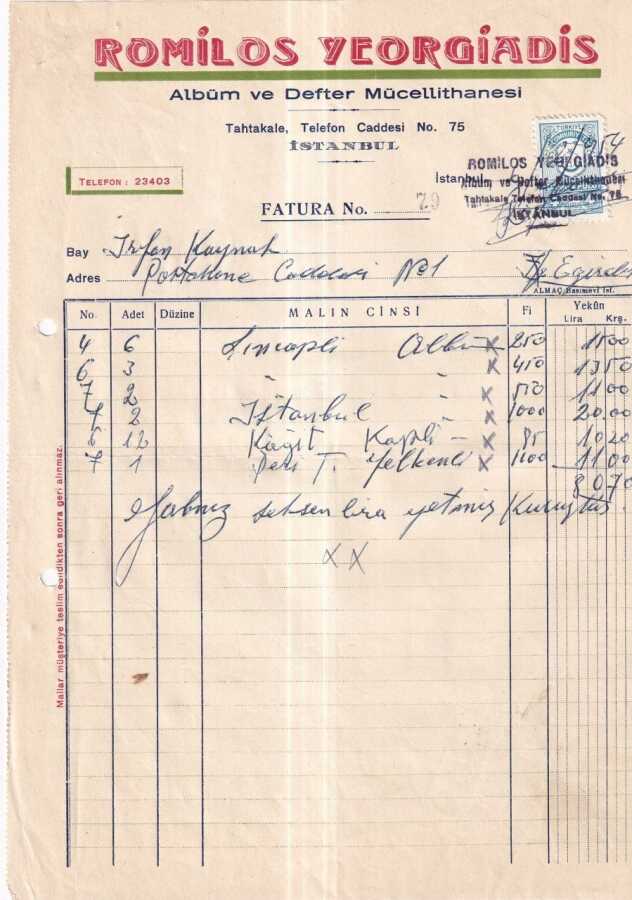 ROMİLOS YEORGİADİS
Albüm ve Defter Mücellithanesi
Tahtakale, Telefon Caddesi No. 75
İSTANBUL
TELEFON : 23403
İstanbul
ROMİLOS YEORGİADİS
Albüm ve Defter Mücellithanesi
Tahtakale Telefon Caddesi No. 75
İSTANBUL
FATURA No. 79
Bay İrfan Kaynak
Adres Postahane Caddesi No1
ALMAÇ Basımevi İst.
No. Adet Düzine MALIN CİNSİ Fi Yekûn
Lira Krş.
4 6 Albüm x 250 1500
6 3 " " x 450 1350
7 2 " x 550 1100
7 2 İstanbul " x 1000 2000
6 12 Kâğıt Kaplı – x 85 1020
7 1 Deri T. Yelkenli x 1100 1100
8070
Yalnız seksen lira yetmiş kuruştur.
x x
Mallar müşteriye teslim edildikten sonra geri alınmaz.